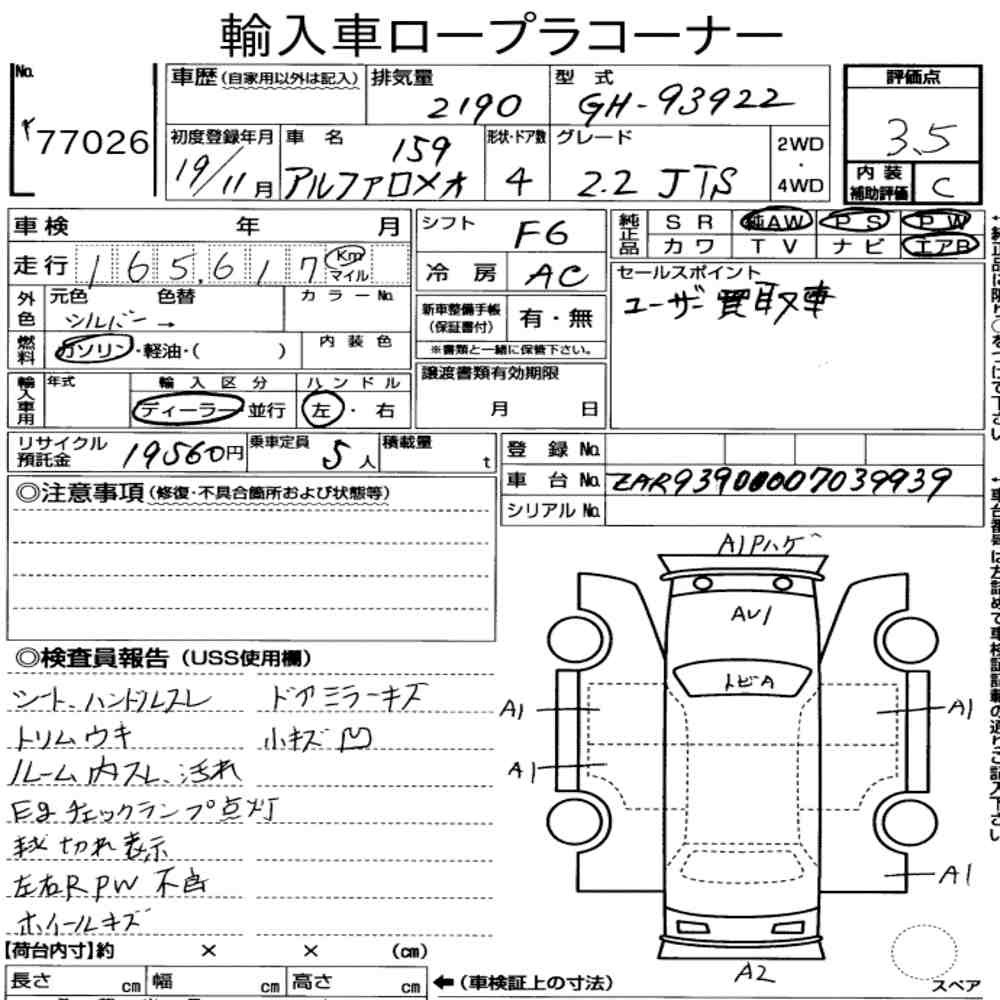 輸入車ロープラコーナー
No. 77026
車歴(自家用以外は記入) 排気量 2190 型式 GH-93922
初度登録年月 19/11月 車名 159 アルファロメオ 形状・ドア数 4 グレード 2.2 JTS 2WD・4WD
評価点 3.5
内装補助評価 C
車検 年 月
走行 165,617 Km マイル
外色 元色 シルバー → 色替 カラーNo.
燃料 ガソリン・軽油・( ) 内装色
輸入車用 年式 輸入区分 ディーラー・並行 ハンドル 左・右
シフト F6
冷房 AC
新車整備手帳(保証書付) 有・無
※書類と一緒に保管下さい。
譲渡書類有効期限 月 日
純正品 SR 純AW PS PW
カワ TV ナビ エアB
セールスポイント
ユーザー買取車
リサイクル預託金 19560円 乗車定員 5人 積載量 t
登録No.
車台No. ZAR93900007039939
シリアルNo.
◎注意事項(修復・不具合箇所および状態等)
◎検査員報告(USS使用欄)
シート、ハンドルスレ ドアミラーキズ
トリムウキ 小キズ凹
ルーム内スレ、汚れ
Egチェックランプ点灯
球切れ表示
左右RPW不良
ホイールキズ
A1Pハゲ
AU1
トビA
A1
A1
A1
A1
A2
スペア
【荷台内寸】約 × × (cm)
長さ cm 幅 cm 高さ cm ←(車検証上の寸法)